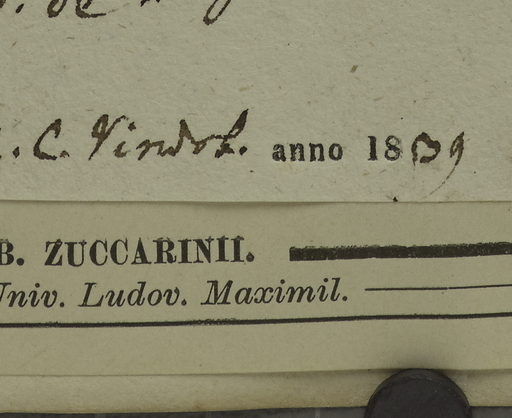 . C. Vindob. anno 1839
B. ZUCCARINII.
Univ. Ludov. Maximil.